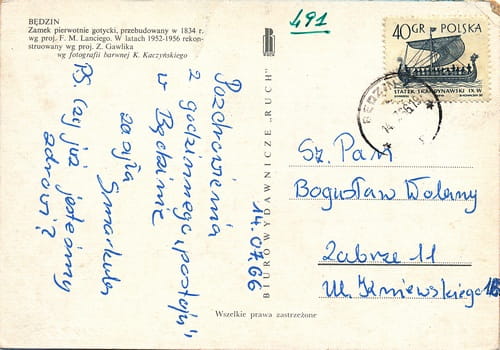 BĘDZIN
Zamek pierwotnie gotycki, przebudowany w 1834 r.
wg proj. F. M. Lanciego. W latach 1952-1956 rekon-
struowany wg proj. Z. Gawlika
wg fotografii barwnej K. Kaczyńskiego
491
40 GR POLSKA
STATEK SKANDYNAWSKI IX W.
BĘDZIN
Pozdrowienia
z godzinnego „postoju"
w Będzinie
za
Smarkula
PS. Czy już jesteśmy
zdrowi?
14.07.66
BIURO WYDAWNICZE „RUCH"
Sz. Pan
Bogusław Wolany
Zabrze 11
Ul. Kniewskiego
Wszelkie prawa zastrzeżone